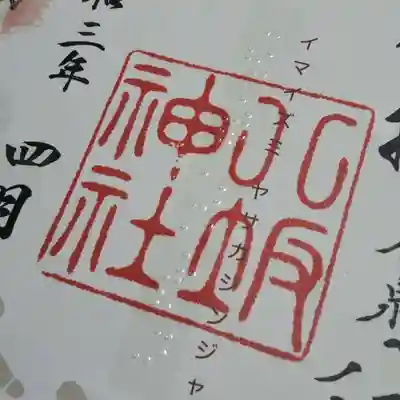 イマイズミヤサカジンジャ
八坂
神社
和三年
四月